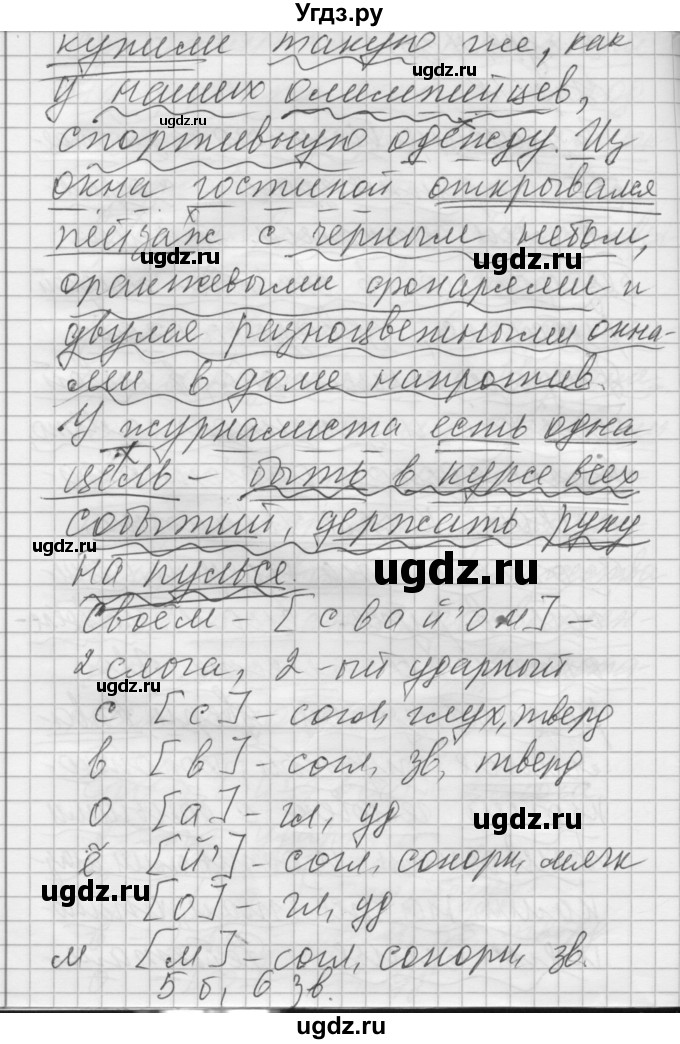 Угдз.ру
купили такую же, как
ugdz.ru
у наших олимпийцев,
ugdz.ru
спортивную одежду. Из
окна гостиной открывался
пейзаж с черным небом,
ugdz.ru
ugdz.ru
оранжевыми фонарями и
двумя разноцветными окна-
ми в доме напротив.
У журналиста есть одна
цель – быть в курсе всех
событий, держать руку
ugdz.ru
на пульсе.
ugdz.ru
Своём – [свай'ом] –
2 слога, 2-ый ударный
ugdz.ru
с [с] – согл, глух, тверд
в [в] – согл, зв, тверд
о [а] – гл, уд
ugdz.ru
ё [й'] – согл, сонорн, мягк
ugdz.ru
[о] – гл, уд
м [м] – согл, сонорн, зв.
5 б, 6 зв.
ugdz.ru